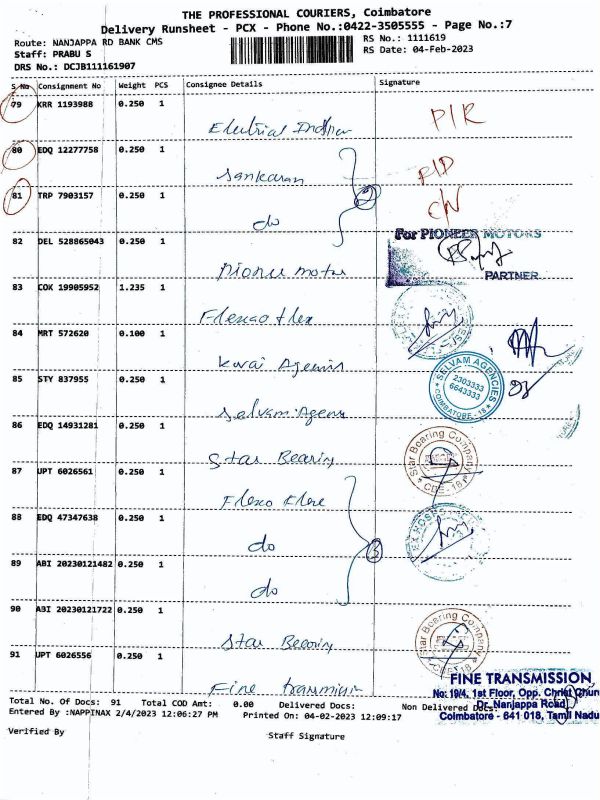 THE PROFESSIONAL COURIERS, Coimbatore
Delivery Runsheet - PCX - Phone No.:0422-3505555 - Page No.:7
Route: NANJAPPA RD BANK CMS
RS No.: 1111619
Staff: PRABU S
RS Date: 04-Feb-2023
DRS No.: DCJB111161907
S No Consignment No Weight PCS Consignee Details Signature
79 KRR 1193988 0.250 1
Electrical Indner P/R
80 EDQ 12277758 0.250 1
Sankaran P/D
81 TRP 7903157 0.250 1
do 2 C/N
82 DEL 528865043 0.250 1
For PIONEER MOTORS
Pioneer motor
PARTNER
83 COK 19905952 1.235 1
Flexco flex
84 MRT 572620 0.100 1
Agencis
85 STY 837955 0.250 1
SELVAM AGENCIES
2303333
6643333
* COIMBATORE - 18 *
Selvam Agens
86 EDQ 14931281 0.250 1
Star Bearing
Star Bearing Company
* CBE-18 *
87 UPT 6026561 0.250 1
Flexo Flexe
88 EDQ 47347638 0.250 1
do
89 ABI 20230121482 0.250 1
do 3
90 ABI 20230121722 0.250 1
Star Bearing
Star Bearing Company
91 UPT 6026556 0.250 1
Fine transmissin
FINE TRANSMISSION
No: 19/4, 1st Floor, Opp. Christ Chur
Dr. Nanjappa Road
Coimbatore - 641 018, Tamil Nadu
Total No. Of Docs: 91 Total COD Amt: 0.00 Delivered Docs: Non Delivered Docs:
Entered By :NAPPINAX 2/4/2023 12:06:27 PM Printed On: 04-02-2023 12:09:17
Verified By Staff Signature